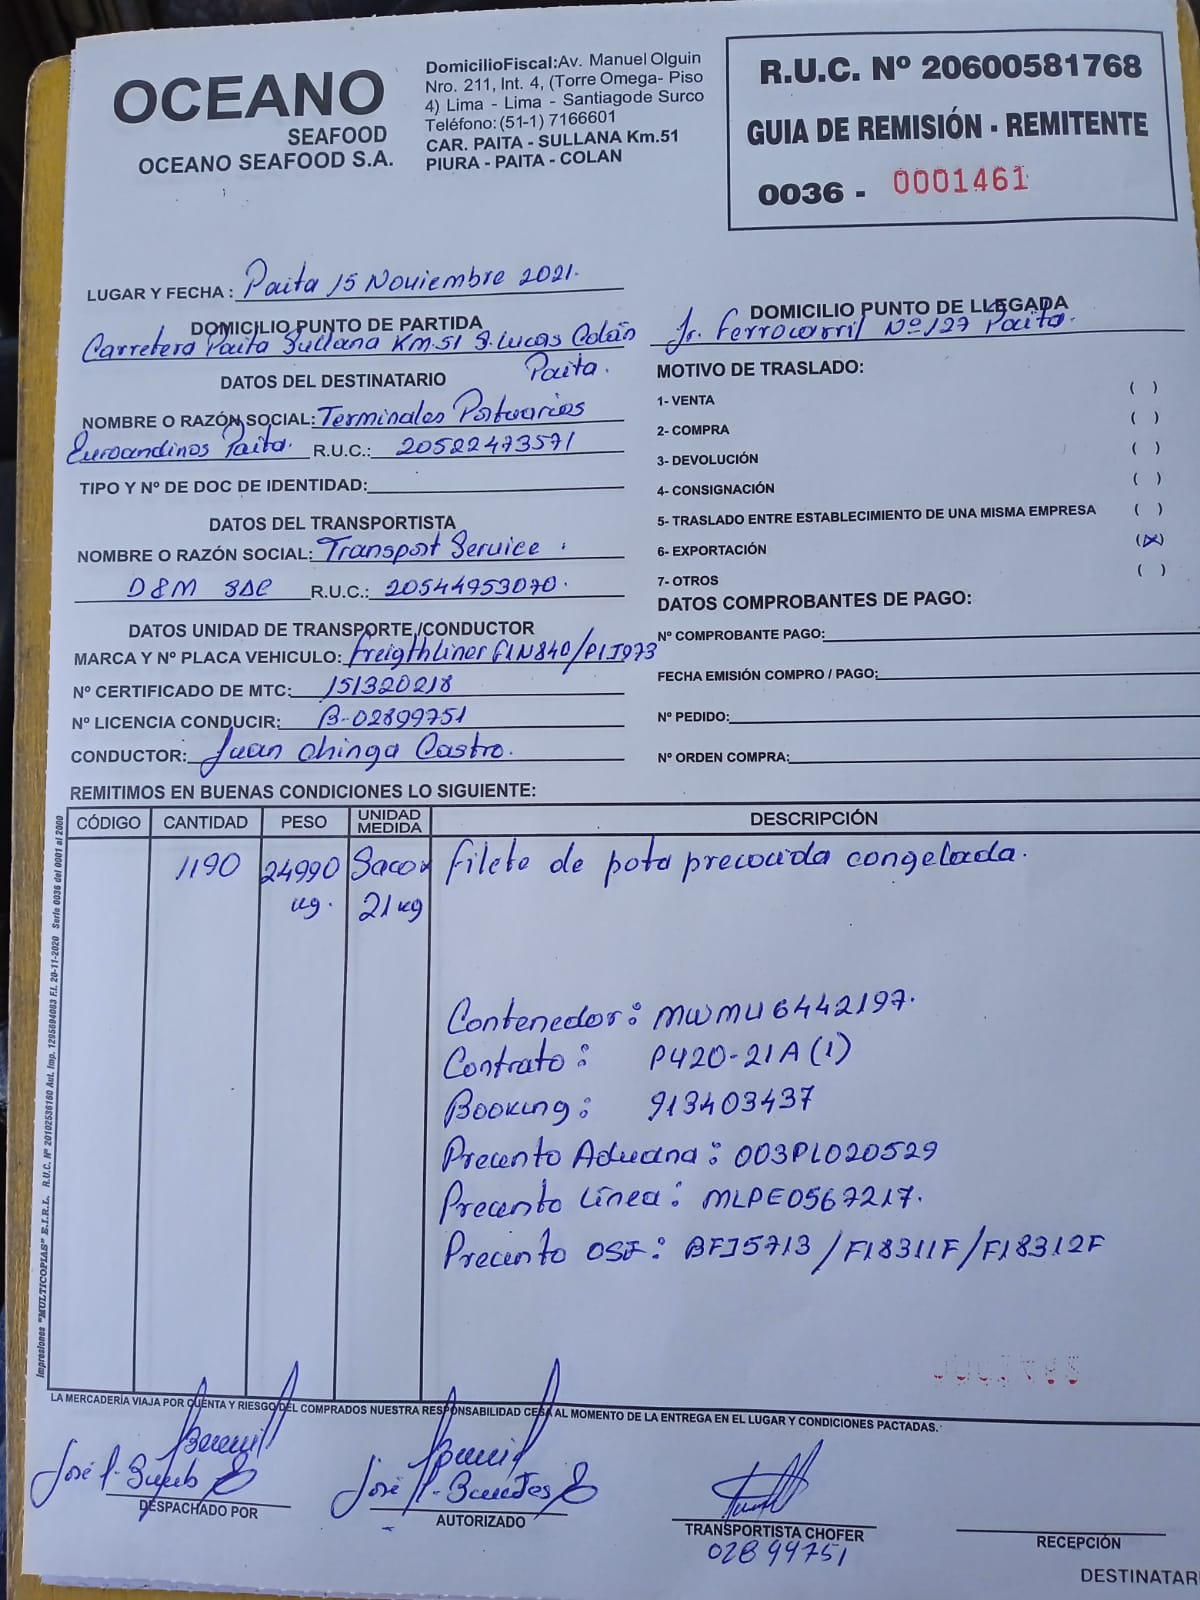 OCEANO
SEAFOOD
OCEANO SEAFOOD S.A.
DomicilioFiscal:Av. Manuel Olguin
Nro. 211, Int. 4, (Torre Omega- Piso
4) Lima - Lima - Santiagode Surco
Teléfono:(51-1) 7166601
CAR. PAITA - SULLANA Km.51
PIURA - PAITA - COLAN
R.U.C. Nº 20600581768
GUIA DE REMISIÓN - REMITENTE
0036 - 0001461
LUGAR Y FECHA : Paita 15 Noviembre 2021.
DOMICILIO PUNTO DE PARTIDA
Carretera Paita Sullana Km.51 S. Lucas Colán
Paita.
DOMICILIO PUNTO DE LLEGADA
Jr. Ferrocarril Nº 127 Paita.
DATOS DEL DESTINATARIO
NOMBRE O RAZÓN SOCIAL: Terminales Portuarios
Euroandinos Paita. R.U.C.: 20522473571
TIPO Y Nº DE DOC DE IDENTIDAD:
DATOS DEL TRANSPORTISTA
NOMBRE O RAZÓN SOCIAL: Transport Service
D&M SAC R.U.C.: 20544953070.
DATOS UNIDAD DE TRANSPORTE /CONDUCTOR
MARCA Y Nº PLACA VEHICULO: Freigthliner /P1J973
Nº CERTIFICADO DE MTC: 151320218
Nº LICENCIA CONDUCIR: B-02899751
CONDUCTOR: Juan Chinga Castro.
MOTIVO DE TRASLADO:
1- VENTA ( )
2- COMPRA ( )
3- DEVOLUCIÓN ( )
4- CONSIGNACIÓN ( )
5- TRASLADO ENTRE ESTABLECIMIENTO DE UNA MISMA EMPRESA ( )
6- EXPORTACIÓN (X)
7- OTROS ( )
DATOS COMPROBANTES DE PAGO:
Nº COMPROBANTE PAGO:
FECHA EMISIÓN COMPRO / PAGO:
Nº PEDIDO:
Nº ORDEN COMPRA:
REMITIMOS EN BUENAS CONDICIONES LO SIGUIENTE:
CÓDIGO CANTIDAD PESO UNIDAD MEDIDA DESCRIPCIÓN
1190 24990 Saco x filete de pota precocida congelada.
kg. 21 kg
Contenedor: MWMU6442197.
Contrato: P420-21A(1)
Booking: 913403437
Precinto Aduana: 003PL020529
Precinto Línea: MLPE0567217.
Precinto OSF: BFJ5713 /F18311F/F18312F
Impresiones "MULTICOPIAS" E.I.R.L. R.U.C. Nº 20102536160 Aut. Imp. 1295694083 F.I. 20-11-2020 Serie 0036 del 0001 al 2000
LA MERCADERÍA VIAJA POR CUENTA Y RIESGO DEL COMPRADOS NUESTRA RESPONSABILIDAD CESA AL MOMENTO DE LA ENTREGA EN EL LUGAR Y CONDICIONES PACTADAS.
DESPACHADO POR
AUTORIZADO
TRANSPORTISTA CHOFER
02899751
RECEPCIÓN
DESTINATAR